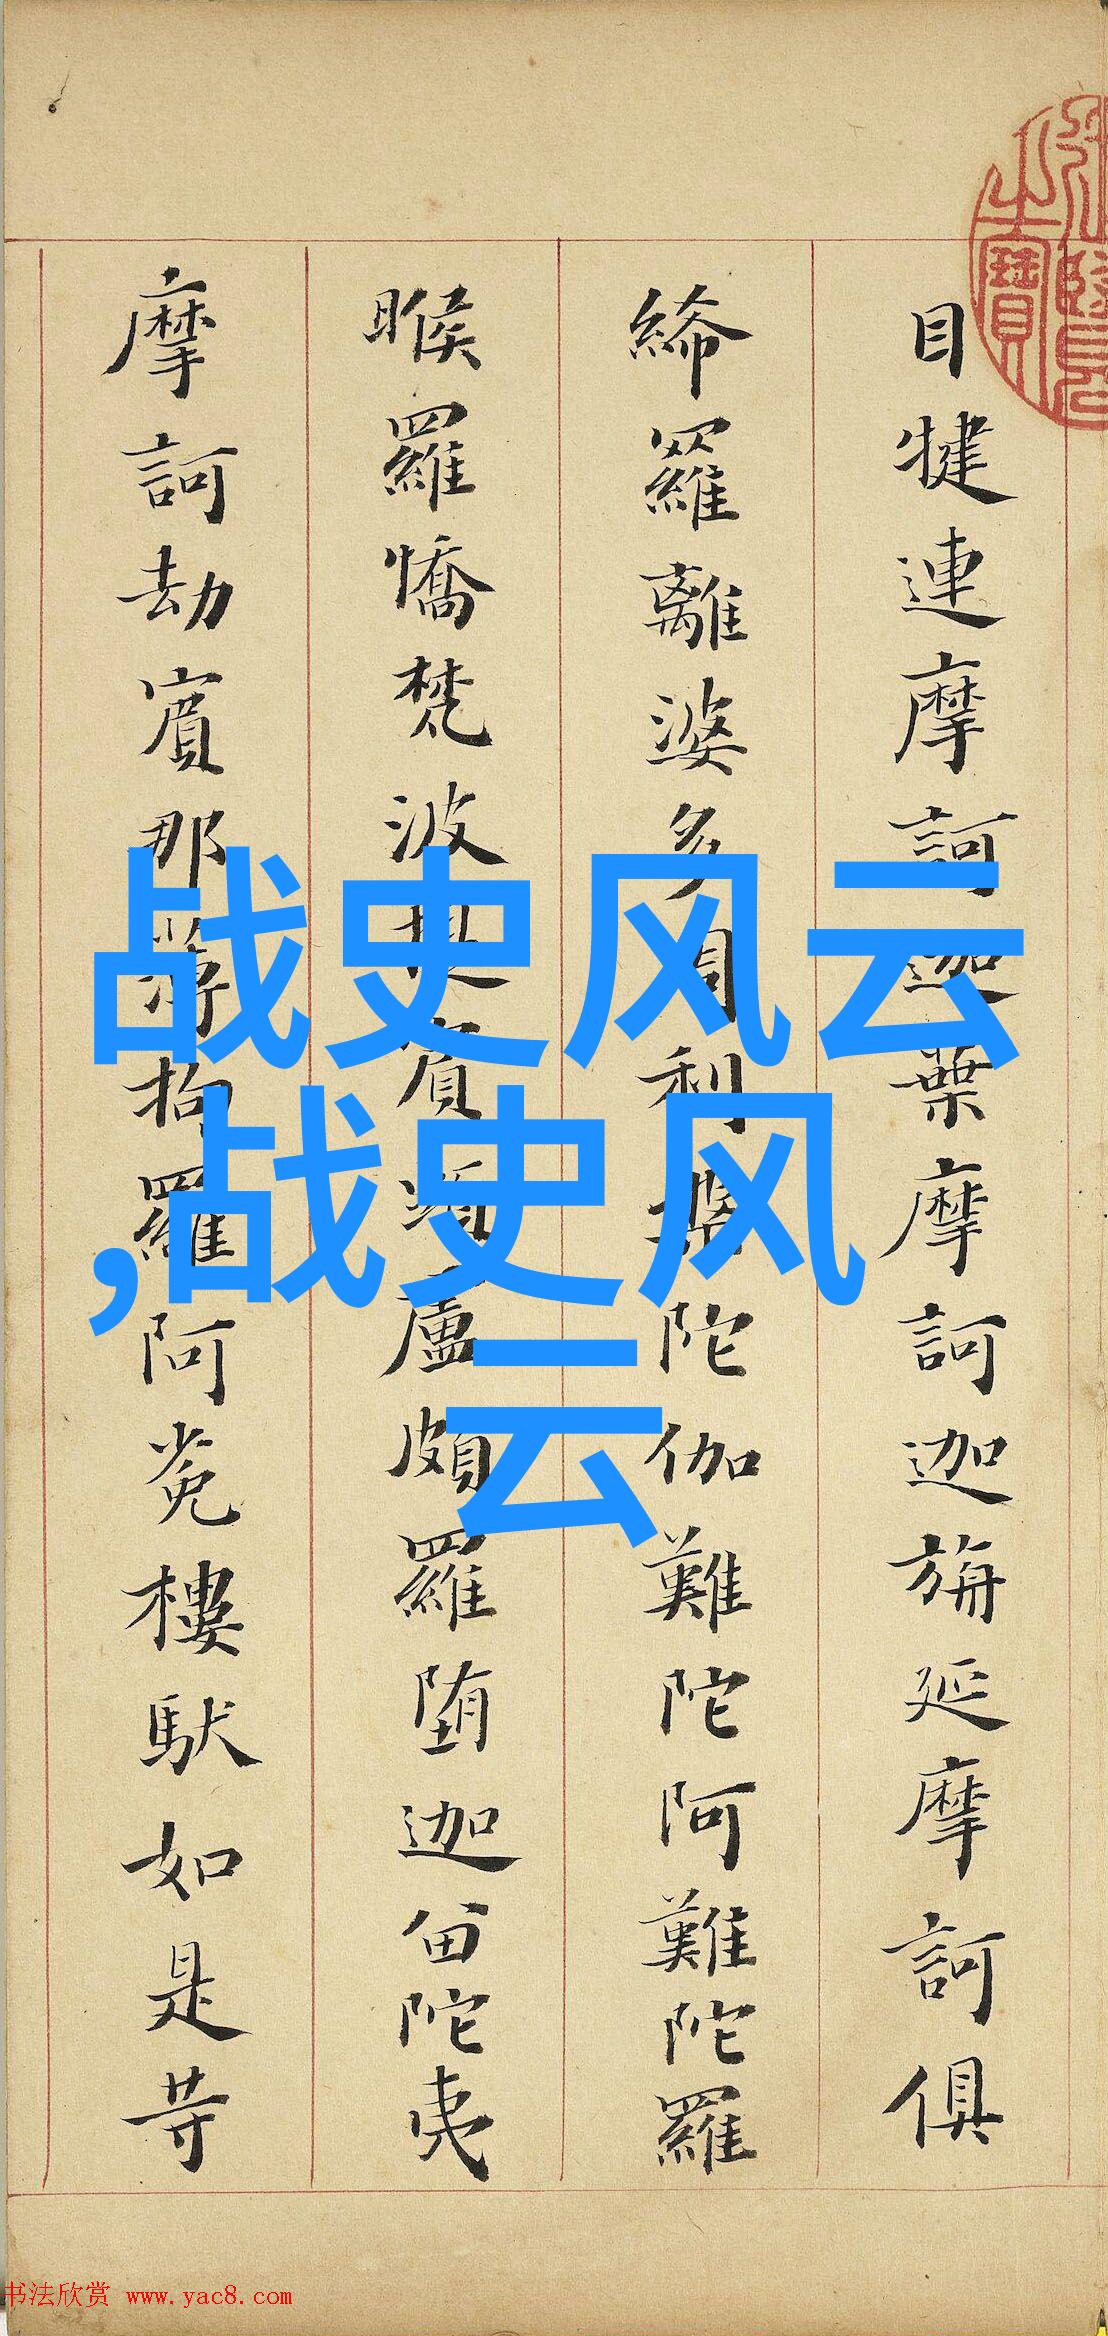 目犍連摩訶迦葉摩訶迦旃延摩訶俱
絺羅離婆多周利槃陀伽難陀阿難陀羅
睺羅憍梵波提賓頭盧頗羅堕迦留陀夷
摩訶劫賓那薄拘羅阿㝹樓馱如是等
战史风云
,战史风
云
之寶
书法欣赏 www.yac8.com